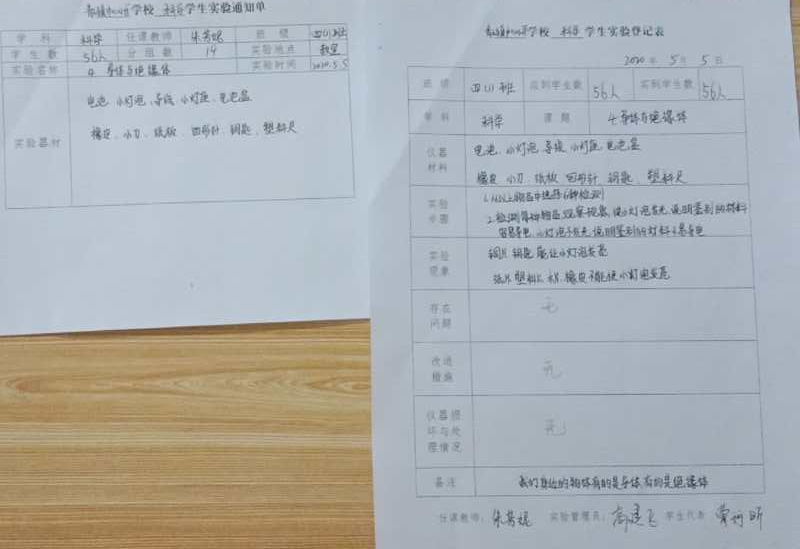 学校 科学 学生实验通知单
学科 科学 任课教师 朱芳妮 班级 四(1)班
学生数 56人 分组数 14 实验地点 教室
实验名称 4 导体与绝缘体 实验时间 2020.5.5
实验器材
电池、小灯泡、导线、小灯座、电池盒
橡皮、小刀、纸板、回形针、钥匙、塑料尺
学校 科学 学生实验登记表
2020 年 5 月 5 日
班级 四(1)班 应到学生数 56人 实到学生数 56人
学科 科学 课题 4 导体与绝缘体
仪器材料
电池、小灯泡、导线、小灯座、电池盒
橡皮、小刀、纸板、回形针、钥匙、塑料尺
实验步骤
1.从以上物品中选择6种检测
2.检测每种物品,观察现象,使小灯泡发光,说明鉴别的材料
容易导电,小灯泡不发光,说明鉴别的材料不易导电
实验现象
铜片、钥匙能让小灯泡发亮
纸片、塑料尺、木片、橡皮不能使小灯泡发亮
存在问题 无
改进措施 无
仪器损坏与处理情况 无
备注 我们身边的物体有的是导体,有的是绝缘体
任课教师: 朱芳妮 实验管理员: 学生代表